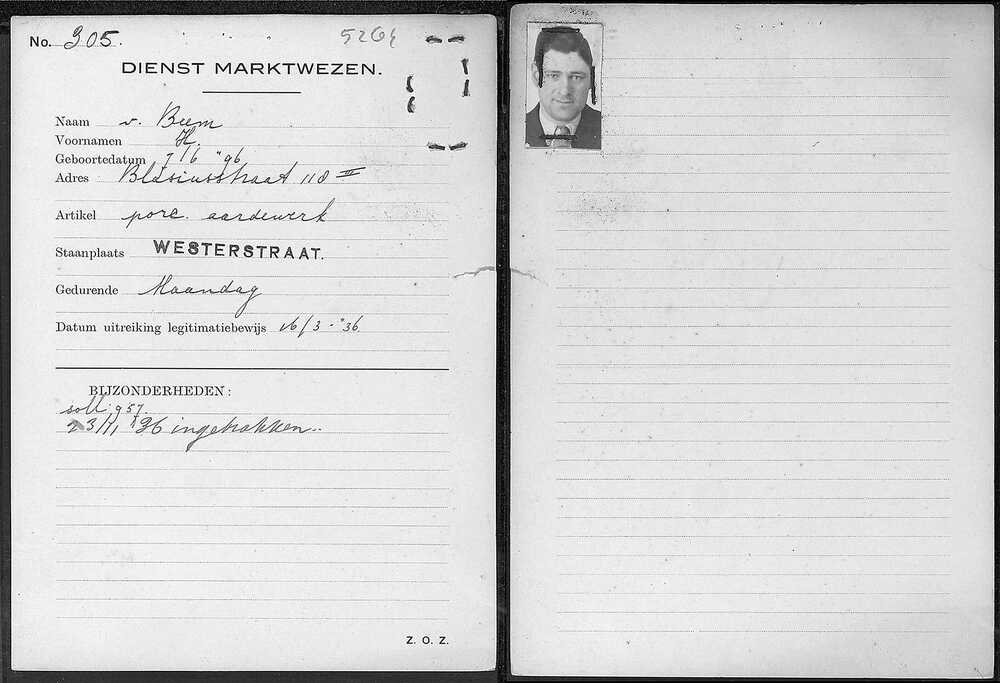 No. 305.
5264
DIENST MARKTWEZEN.
Naam v. Beem
Voornamen H.
Geboortedatum 7/6 "96
Adres Blasiusstraat 118 III
Artikel porc. aardewerk
Staanplaats WESTERSTRAAT.
Gedurende Maandag
Datum uitreiking legitimatiebewijs 16/3 - "36
BIJZONDERHEDEN:
soll. 957.
23/11 '36 ingetrokken..
Z. O. Z.